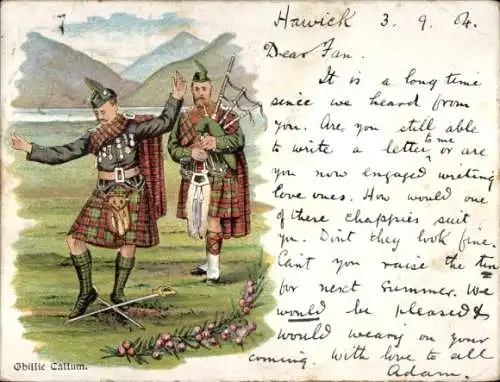 Hawick 3. 9. 04.
Dear Fan.
It is a long time
since we heard from
you. Are you still able
to write a letter to me or are
you now engaged writing
love ones. How would one
of these chappies suit
you. Don't they look fine.
Can't you raise the
for next Summer. We
would be pleased &
would weary on your
coming. With love to all
Adam.
Ghillie Callum.